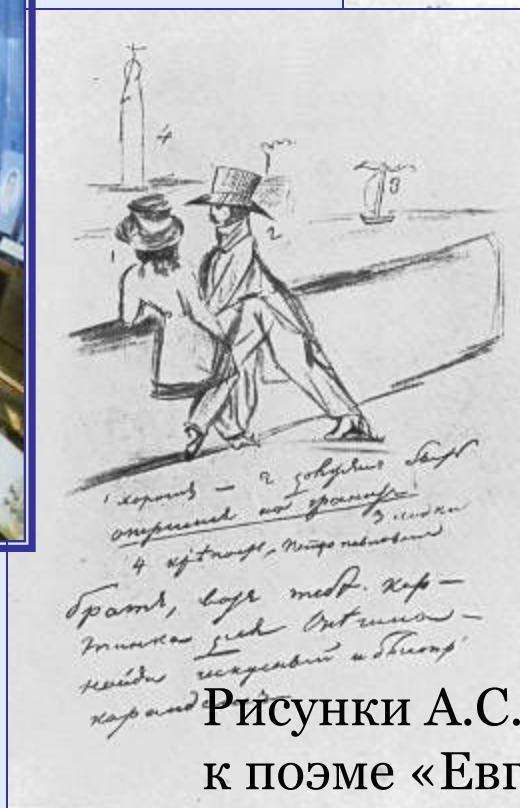 4
3
2
1
1 хорошъ — 2 долженъ быть
опершися на гранитъ
3 лодка
4 крѣпость, Петропавловская
братъ, вотъ тебѣ кар—
тинка для Онѣгина —
найди искусный и быстр
карандашъ
Рисунки А.С.
к поэме «Евг